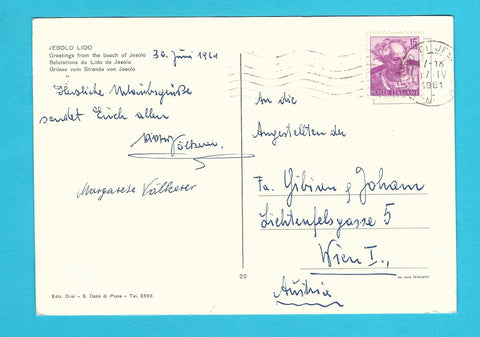 JESOLO LIDO
Greetings from the beach of Jesolo
Salutations du Lido de Jesolo
Grüsse vom Strande von Jesolo
30. Juni 1961
Herzliche Urlaubsgrüße
sendet Euch allen
Völkerer.
Margarese Völkerer
15
POSTE ITALIANE
1961
An die
Angestellten der
Fa. Gibian & Johann
Lichtenfelsgasse 5
Wien I.,
Austria
22
Ediz. Drei - S. Donà di Piave - Tel. 2596